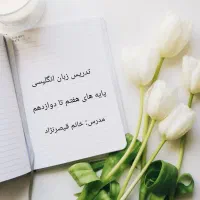 تدریس زبان انگلیسی
پایه های هفتم تا دوازدهم
مدرس: خانم قیصرنژاد